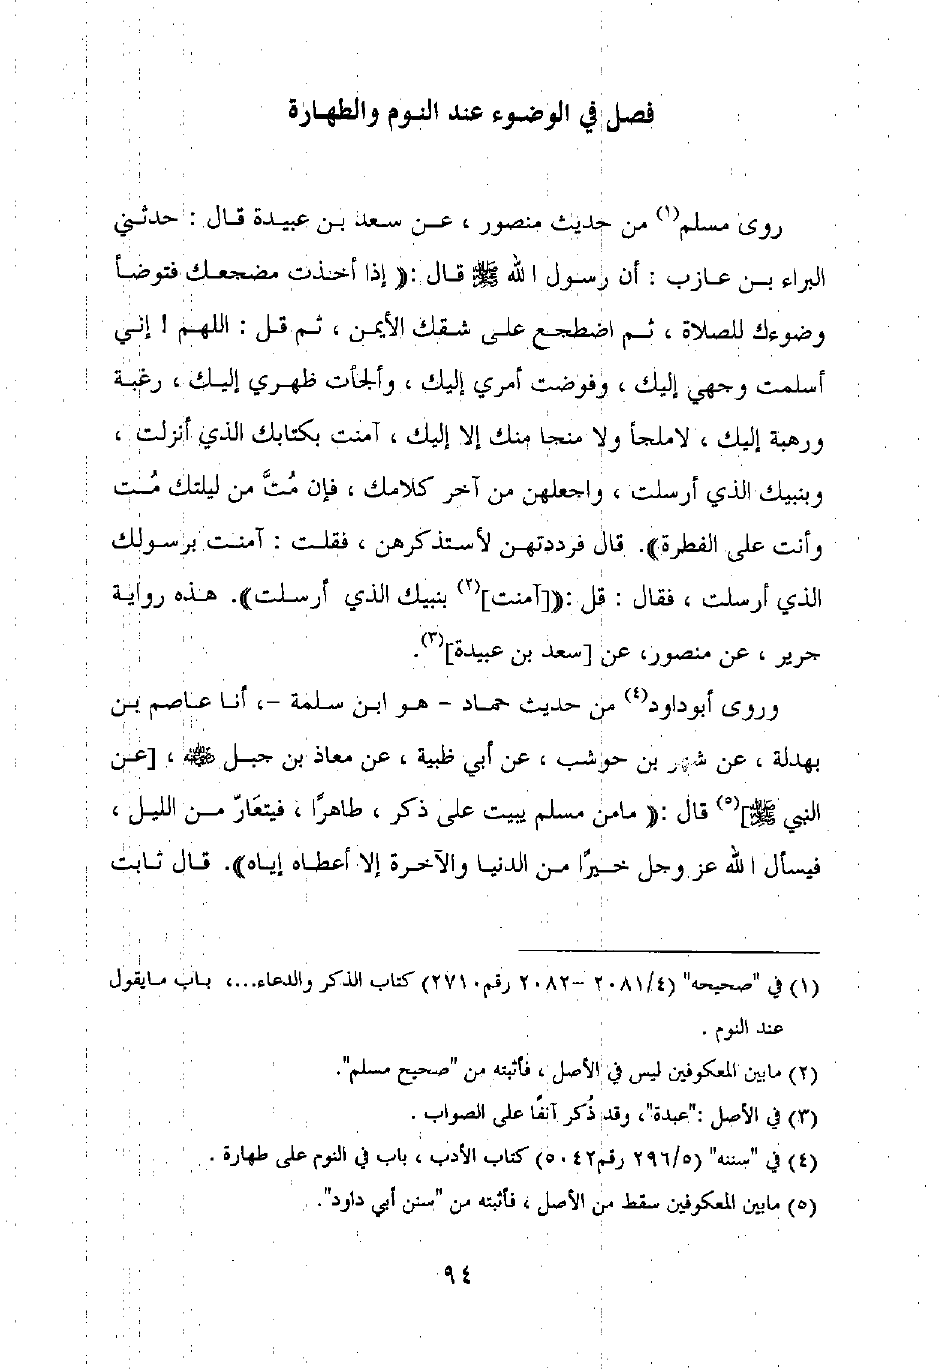 فصل في الوضوء عند النوم والطهارة
روى مسلم(١) من حديث منصور ، عن سعد بن عبيدة قال : حدثني
البراء بن عازب : أن رسول الله ﷺ قال :﴿ إذا أخذت مضجعك فتوضأ
وضوءك للصلاة ، ثم اضطجع على شقك الأيمن ، ثم قل : اللهم ! إني
أسلمت وجهي إليك ، وفوضت أمري إليك ، وألجأت ظهري إليك ، رغبة
ورهبة إليك ، لاملجأ ولا منجا منك إلا إليك ، آمنت بكتابك الذي أنزلت ،
وبنبيك الذي أرسلت ، واجعلهن من آخر كلامك ، فإن مُتَّ من ليلتك مُت
وأنت على الفطرة﴾. قال فرددتهن لأستذكرهن ، فقلت : آمنت برسولك
الذي أرسلت ، فقال : قل :﴿[آمنت](٢) بنبيك الذي أرسلت﴾. هذه رواية
جرير ، عن منصور، عن [سعد بن عبيدة](٣).
وروى أبوداود(٤) من حديث حماد - هو ابن سلمة -، أنا عاصم بن
بهدلة ، عن شهر بن حوشب ، عن أبي ظبية ، عن معاذ بن جبل ﷺ ، [عن
النبي ﷺ](٥) قال :﴿ مامن مسلم يبيت على ذكر ، طاهرًا ، فيتعَارّ من الليل ،
فيسأل الله عز وجل خيرًا من الدنيا والآخرة إلا أعطاه إياه﴾. قال ثابت
(١) في "صحيحه" (٢٠٨١/٤ -٢٠٨٢ رقم٢٧١٠) كتاب الذكر والدعاء...، باب مايقول
عند النوم .
(٢) مابين المعكوفين ليس في الأصل ، فأثبته من "صحيح مسلم".
(٣) في الأصل :"عبدة"، وقد ذُكر آنفًا على الصواب .
(٤) في "سننه" (٢٩٦/٥ رقم٥٠٤٢) كتاب الأدب ، باب في النوم على طهارة .
(٥) مابين المعكوفين سقط من الأصل ، فأثبته من "سنن أبي داود".
٩٤